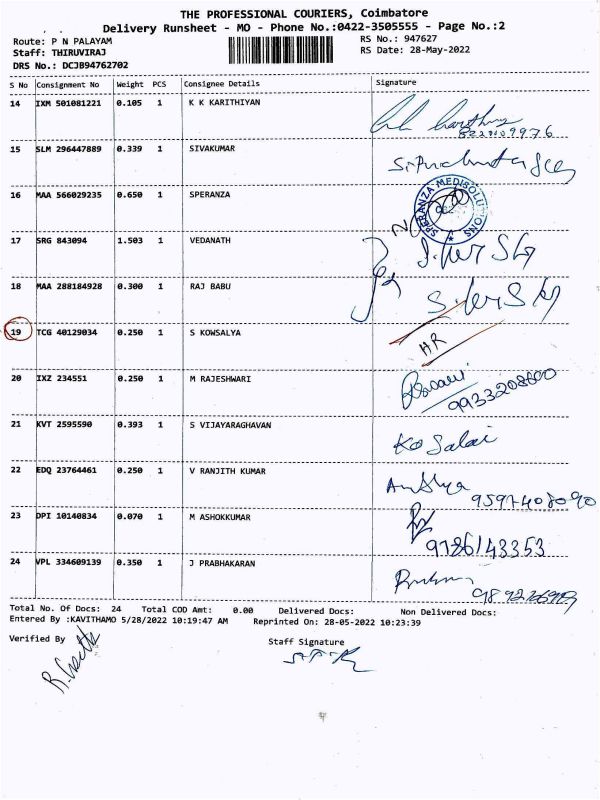 THE PROFESSIONAL COURIERS, Coimbatore
Delivery Runsheet - MO - Phone No.:0422-3505555 - Page No.:2
Route: P N PALAYAM RS No.: 947627
Staff: THIRUVIRAJ RS Date: 28-May-2022
DRS No.: DCJB94762702
S No Consignment No Weight PCS Consignee Details Signature
14 IXM 501081221 0.105 1 K K KARITHIYAN
15 SLM 296447889 0.339 1 SIVAKUMAR
16 MAA 566029235 0.650 1 SPERANZA SPERANZA MEDISOLUTIONS
17 SRG 843094 1.503 1 VEDANATH
18 MAA 288184928 0.300 1 RAJ BABU
19 TCG 40129034 0.250 1 S KOWSALYA HR
20 IXZ 234551 0.250 1 M RAJESHWARI
21 KVT 2595590 0.393 1 S VIJAYARAGHAVAN
22 EDQ 23764461 0.250 1 V RANJITH KUMAR
23 DPI 10140834 0.070 1 M ASHOKKUMAR 9786143353
24 VPL 334609139 0.350 1 J PRABHAKARAN
Total No. Of Docs: 24 Total COD Amt: 0.00 Delivered Docs: Non Delivered Docs:
Entered By :KAVITHAMO 5/28/2022 10:19:47 AM Reprinted On: 28-05-2022 10:23:39
Verified By Staff Signature